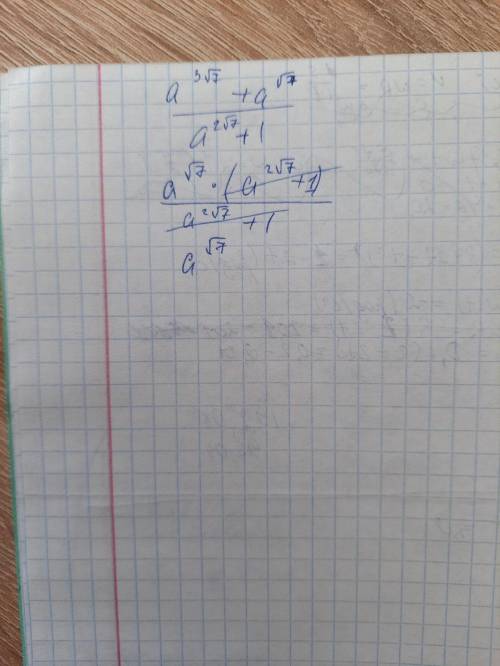 a^{3√7} + a^{√7}
a^{2√7} + 1
a^{√7} · (a^{2√7} + 1)
a^{2√7} + 1
a^{√7}